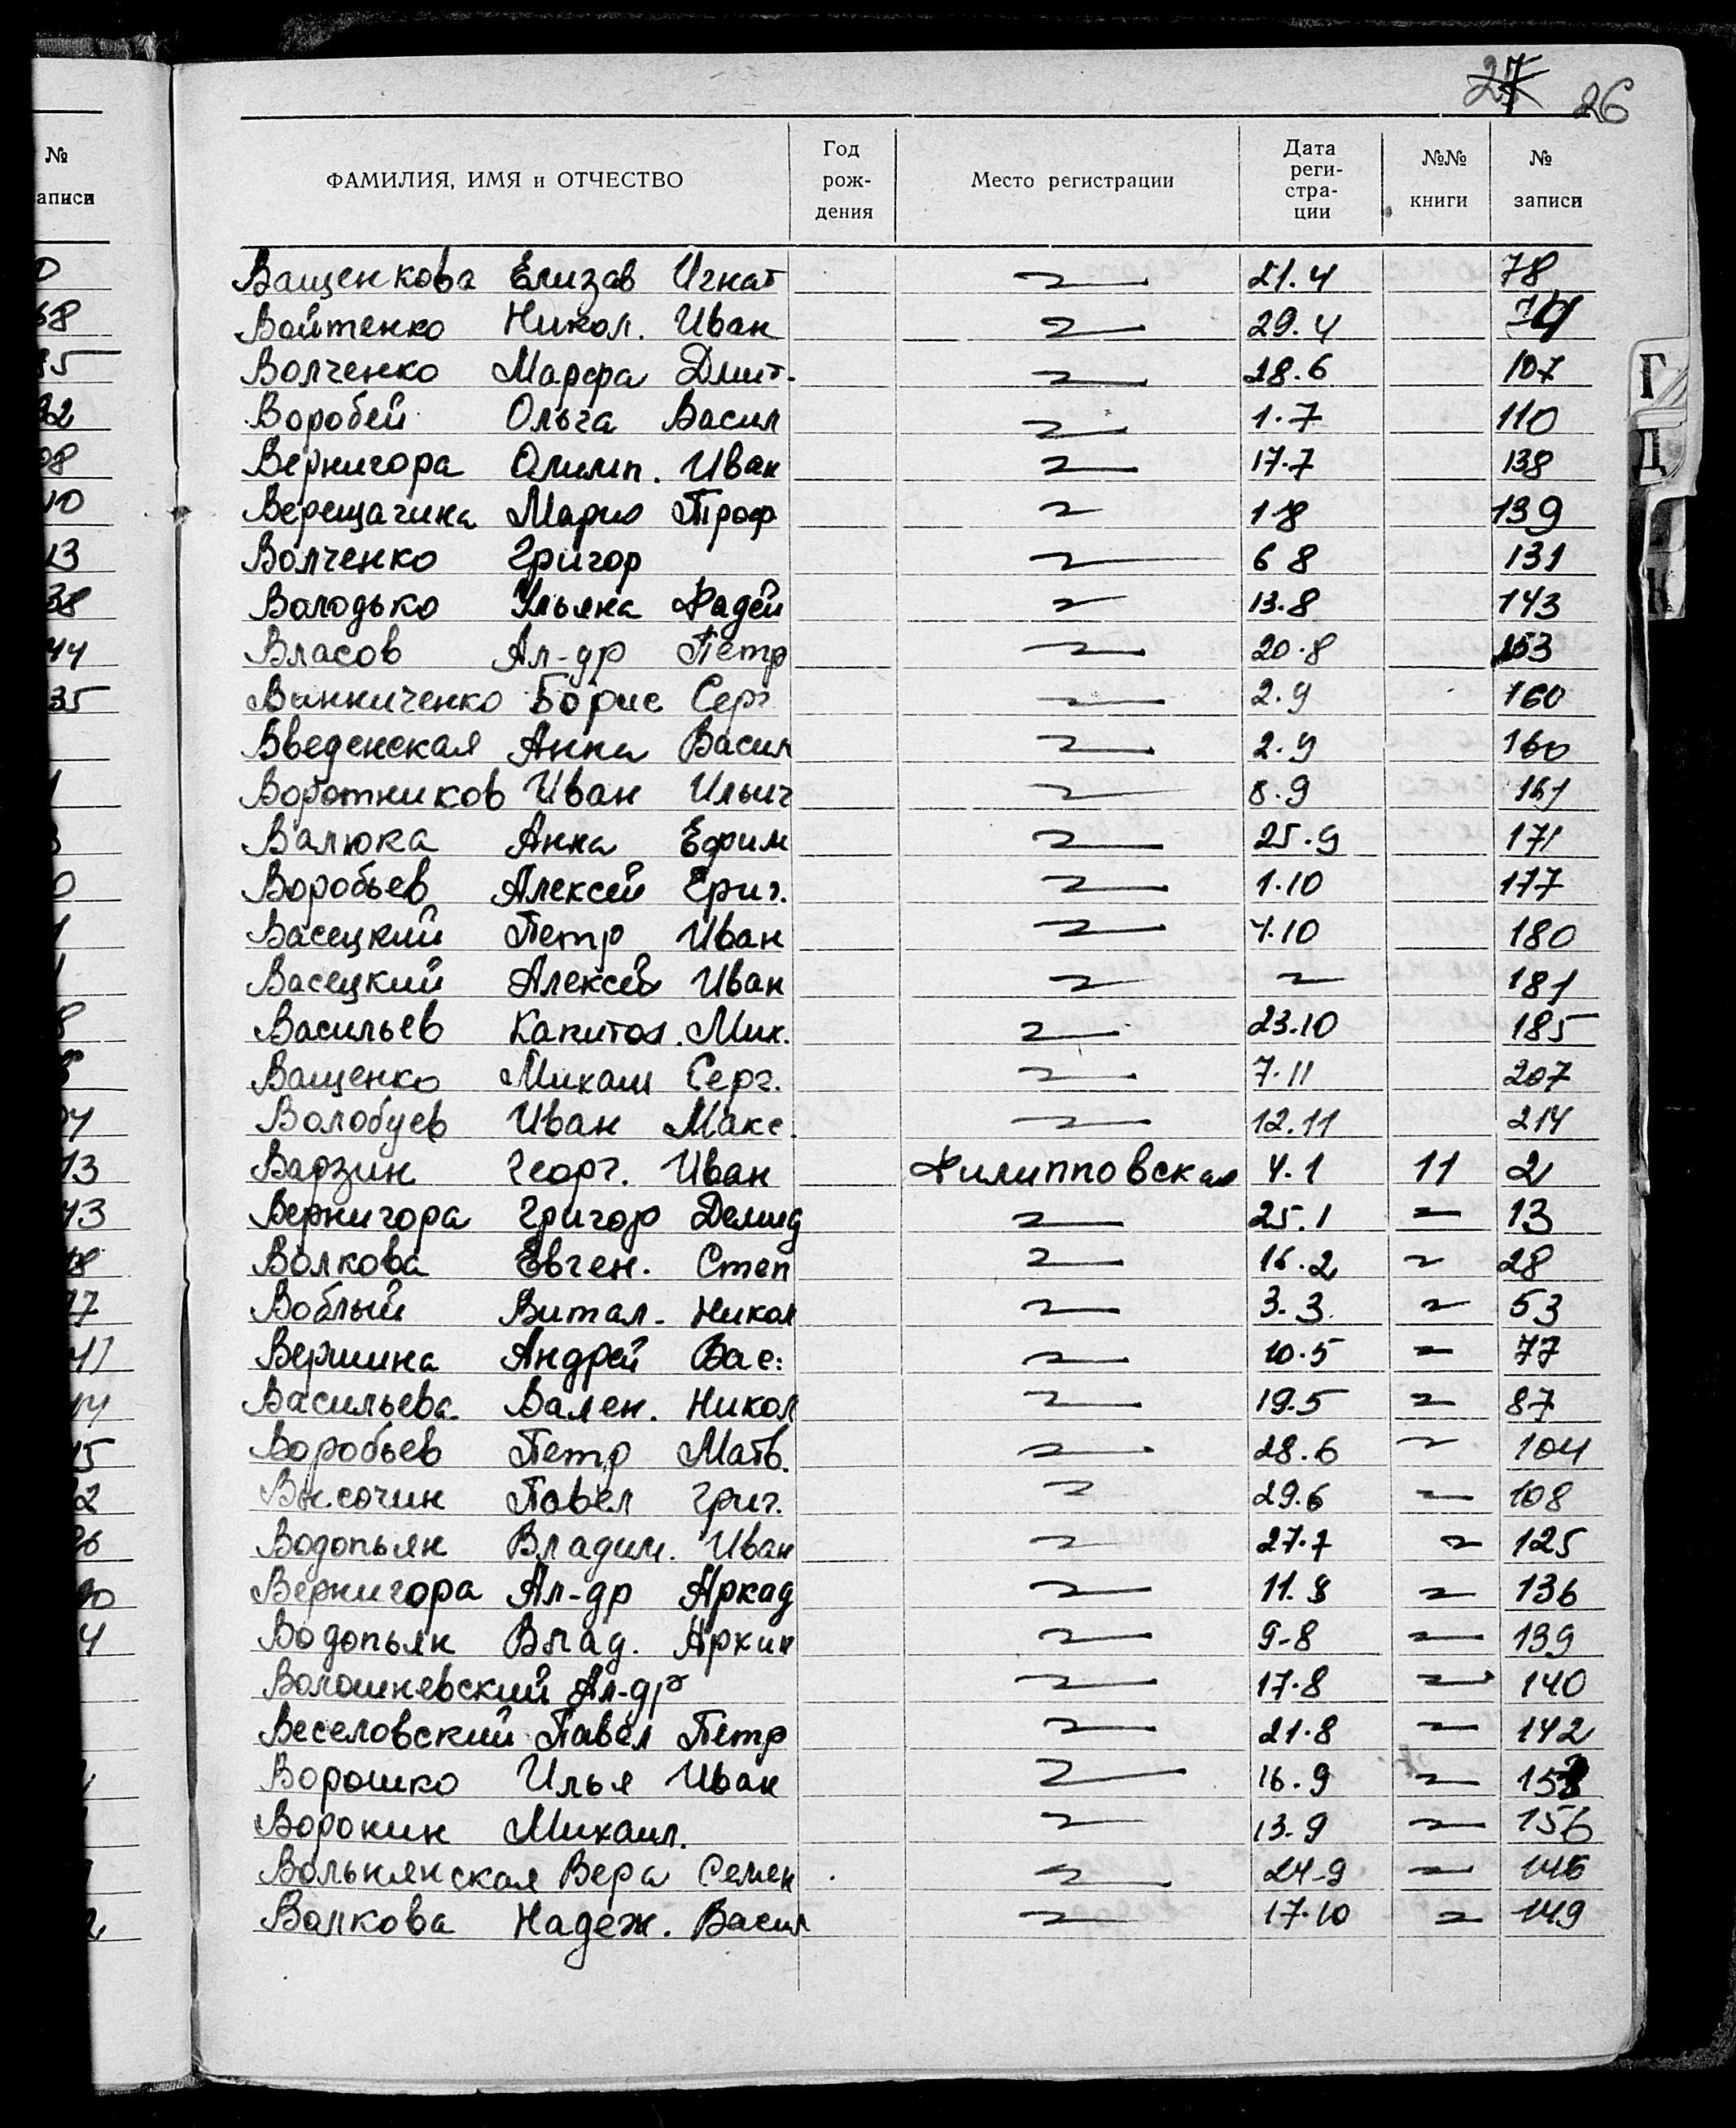 27 26
№ записи
ФАМИЛИЯ, ИМЯ и ОТЧЕСТВО Год рождения Место регистрации Дата регистрации №№ книги № записи
Ващенкова Елизав Игнат 〃 21.4 78
Войтенко Никол. Иван 〃 29.4 79
Волченко Марфа Дмит. 〃 28.6 107
Воробей Ольга Васил 〃 1.7 110
Вернигора Олимп. Иван 〃 17.7 138
Верещагина Мария Троф 〃 1 8 139
Волченко Григор 〃 6 8 131
Володько Ульяна Фадей 〃 13.8 143
Власов Ал-др Петр 〃 20.8 153
Винниченко Борис Серг 〃 2.9 160
Введенская Анна Васил 〃 2.9 160
Воротников Иван Ильич 〃 8.9 161
Валюка Анна Ефим 〃 25.9 171
Воробьев Алексей Григ. 〃 1.10 177
Васецкий Петр Иван 〃 4.10 180
Васецкий Алексей Иван 〃 〃 181
Васильев Капитол. Мих. 〃 23.10 185
Ващенко Михаил Серг. 〃 7.11 207
Волобуев Иван Макс. 〃 12.11 214
Варзин Георг. Иван Филипповская 4.1 11 2
Вернигора Григор Демид 〃 25.1 〃 13
Волкова Евген. Степ 〃 16.2 〃 28
Воблый Витал. Никол 〃 3.3 〃 53
Вершина Андрей Вас. 〃 10.5 〃 77
Васильева Вален. Никол 〃 19.5 〃 87
Воробьев Петр Матв. 〃 28.6 〃 104
Высочин Павел Григ. 〃 29.6 〃 108
Водопьян Владим. Иван 〃 27.7 〃 125
Вернигора Ал-др Аркад 〃 11.8 〃 136
Водопьян Влад. Архип 〃 9-8 〃 139
Волошневский Ал-др 〃 17.8 〃 140
Веселовский Павел Петр 〃 21.8 〃 142
Ворошко Илья Иван 〃 16.9 〃
Воронин Михаил. 〃 13.9 〃 156
Вольнянская Вера Семен 〃 24-9 〃 146
Волкова Надеж. Васил 〃 17.10 〃 149
Г
Д